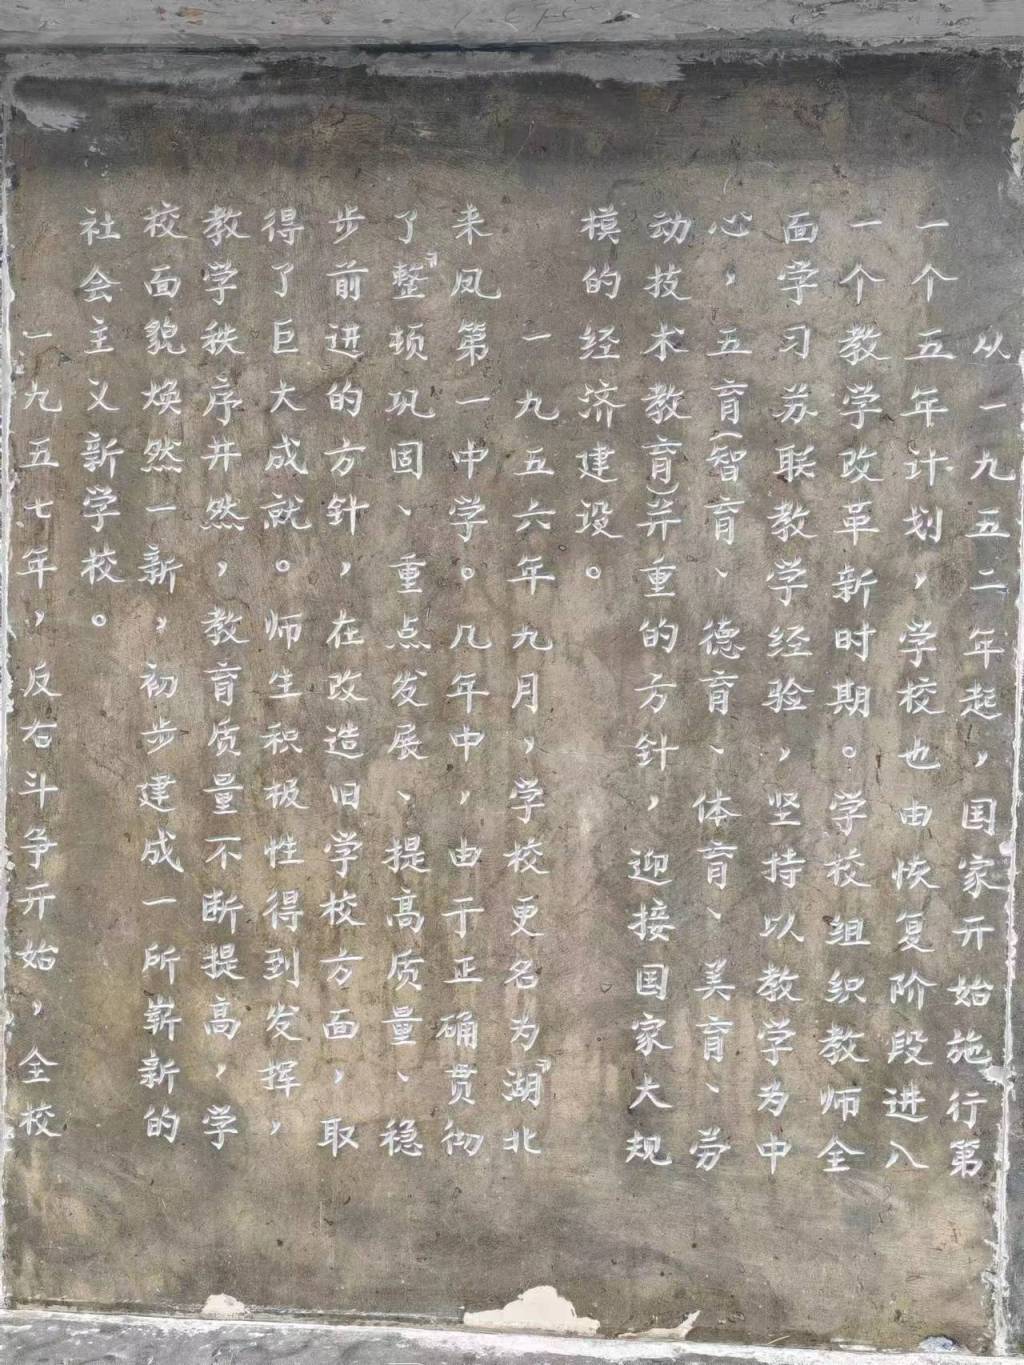 从一九五二年起，国家开始施行第
一个五年计划，学校也由恢复阶段进入
一个教学改革新时期。学校组织教师全
面学习苏联教学经验，坚持以教学为中
心，五育（智育、德育、体育、美育、劳
动技术教育）并重的方针，迎接国家大规
模的经济建设。
一九五六年九月，学校更名为『湖北
来凤第一中学。几年中，由于正确贯彻
了『整顿巩固、重点发展、提高质量、稳
步前进的方针，在改造旧学校方面，取
得了巨大成就。师生积极性得到发挥，
教学秩序井然，教育质量不断提高，学
校面貌焕然一新，初步建成一所崭新的
社会主义新学校。
一九五七年，反右斗争开始，全校